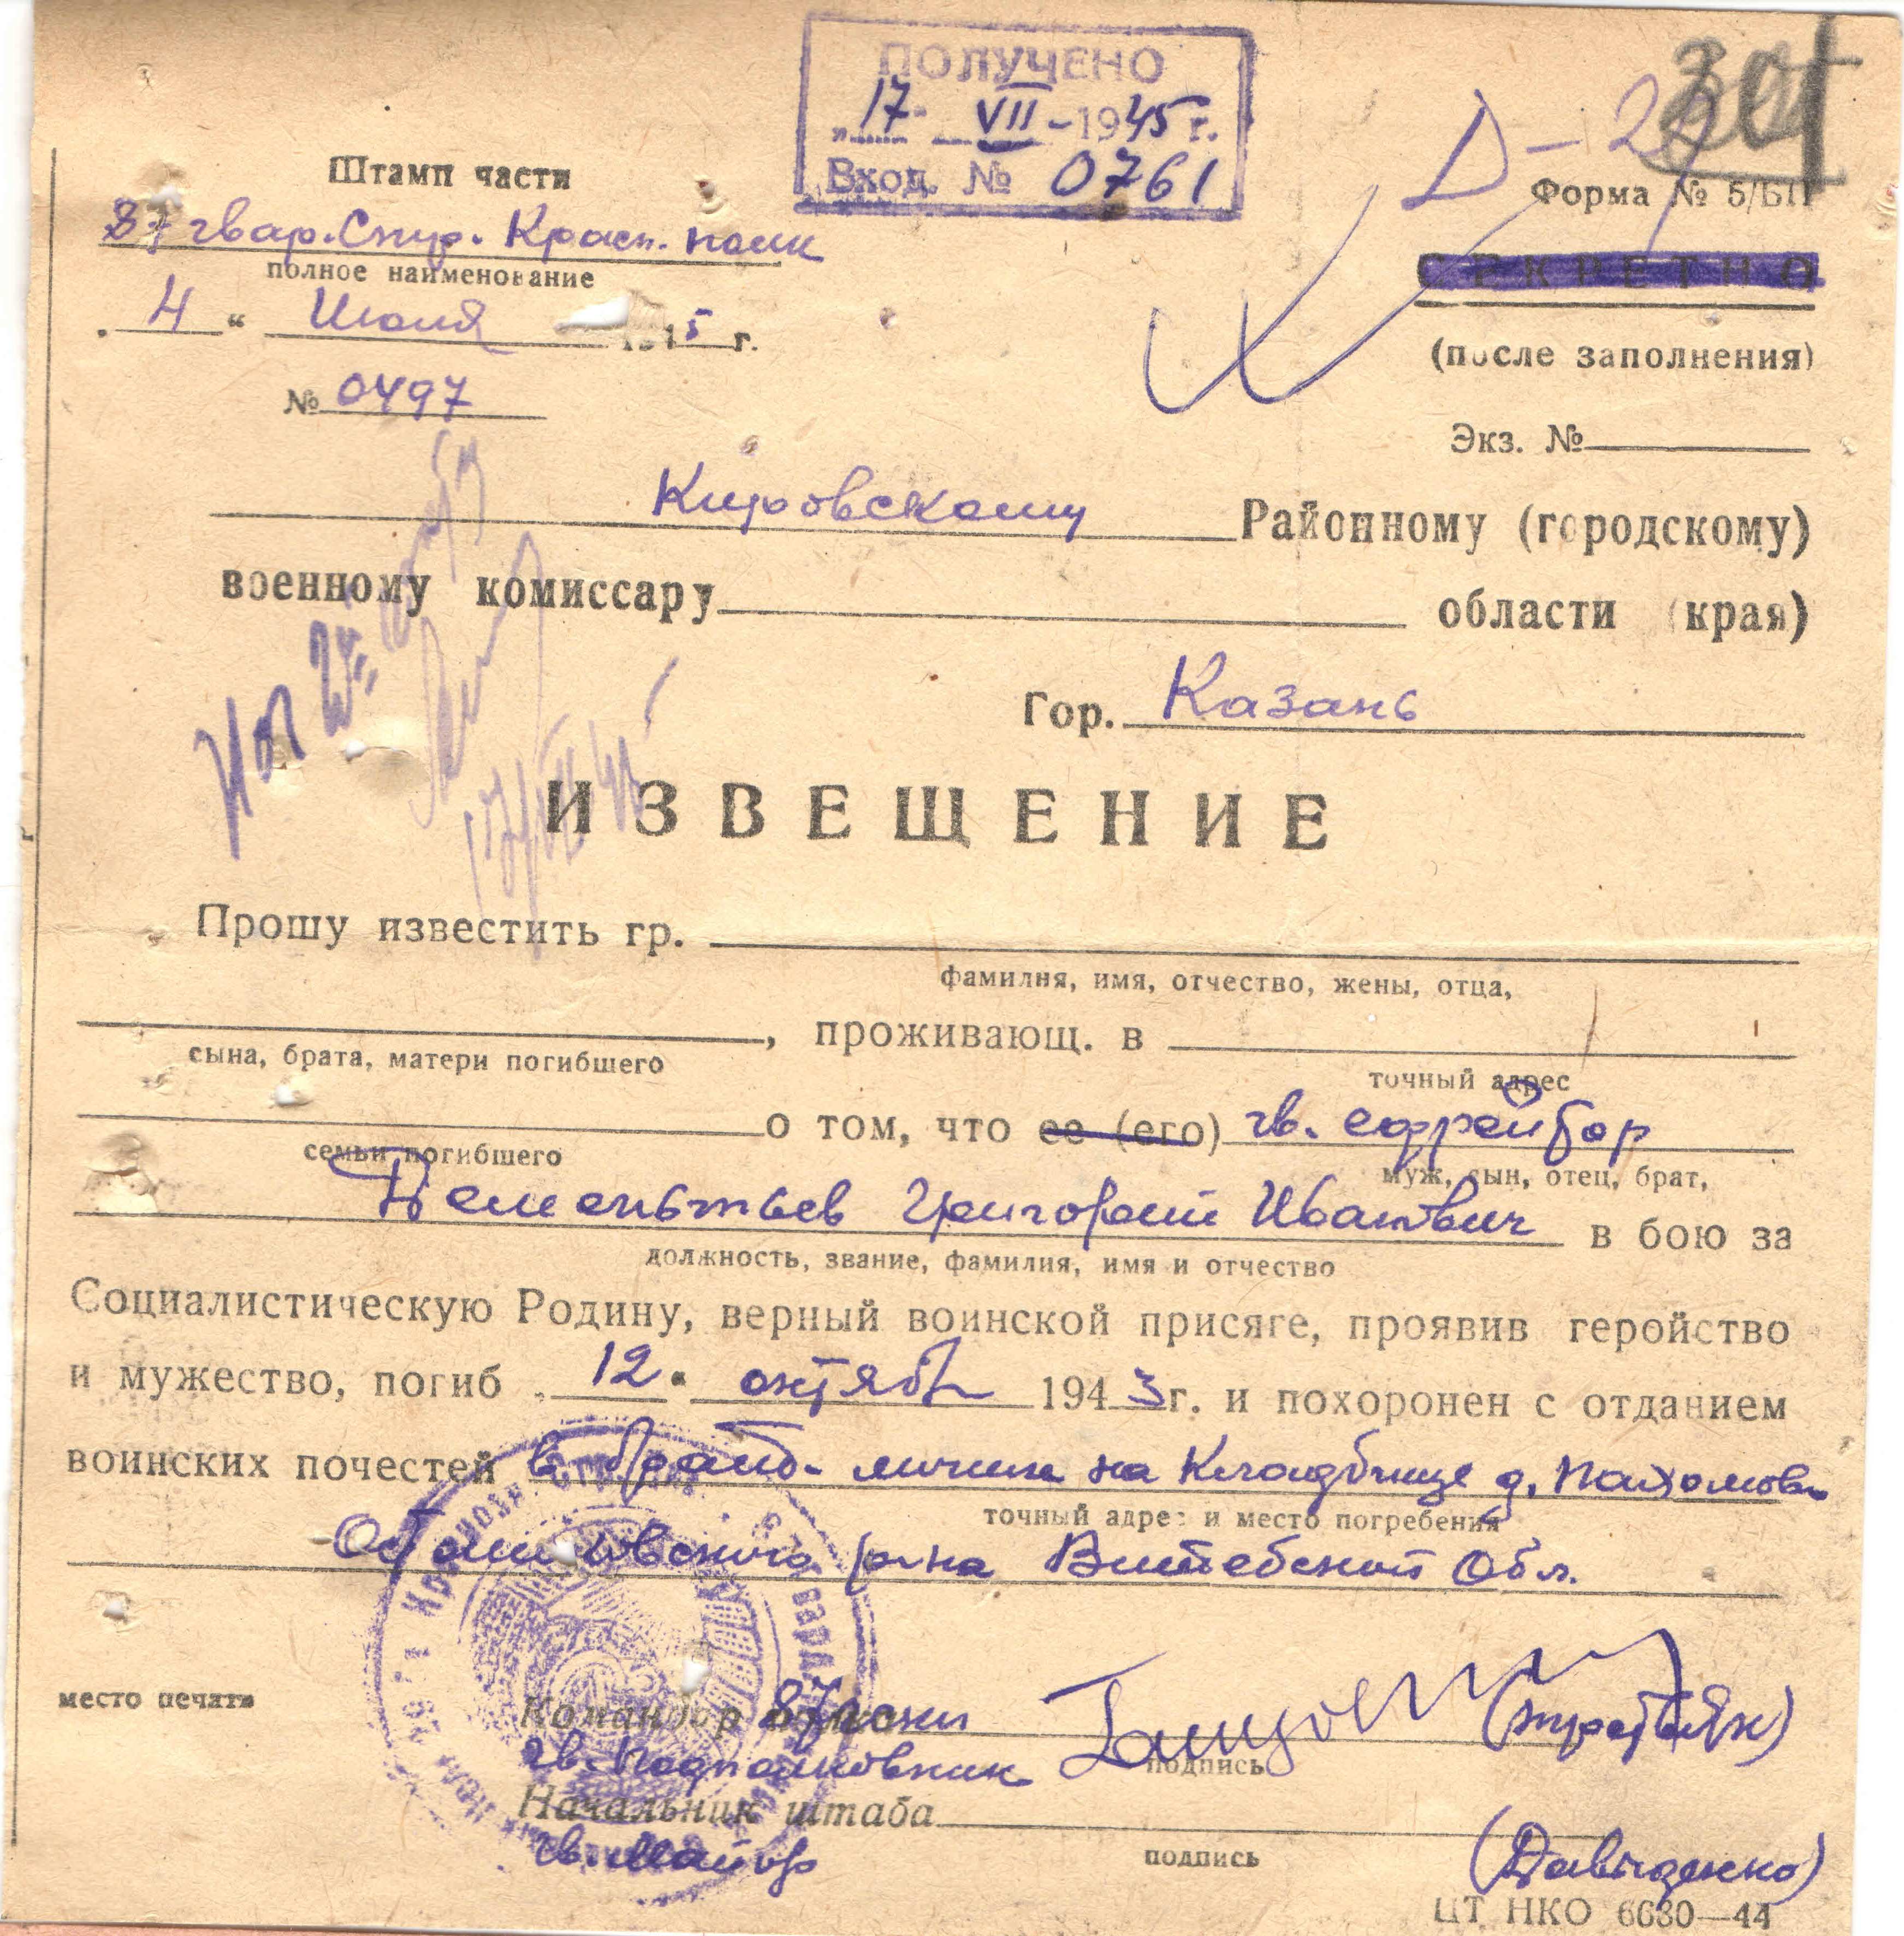 ПОЛУЧЕНО
„17“ VII - 1945 г.
Вход. № 0761
301
Д-2
Штамп части
Форма № 5/БП
87 гвар. Стр. Красн. полк
полное наименование
СЕКРЕТНО
„4“ Июля 1945 г.
(после заполнения)
№ 0497
Экз. №
Кировскому Районному (городскому)
военному комиссару области (края)
Гор. Казань
ИЗВЕЩЕНИЕ
Прошу известить гр.
фамилия, имя, отчество, жены, отца,
, проживающ. в
сына, брата, матери погибшего
точный адрес
о том, что ее (его) гв. ефрейтор
семьи погибшего
муж, сын, отец, брат,
Дементьев Григорий Иванович в бою за
должность, звание, фамилия, имя и отчество
Социалистическую Родину, верный воинской присяге, проявив геройство
и мужество, погиб „12“ октября 1943 г. и похоронен с отданием
воинских почестей в брат. могиле на Кладбище д. Пахомово
точный адрес и место погребения
р-на Витебской Обл.
место печати
Командор 87 гскп
гв. Подполковник
подпись
Начальник штаба
гв. Майор
подпись
(Давиденко)
ЦТ НКО 6630—44